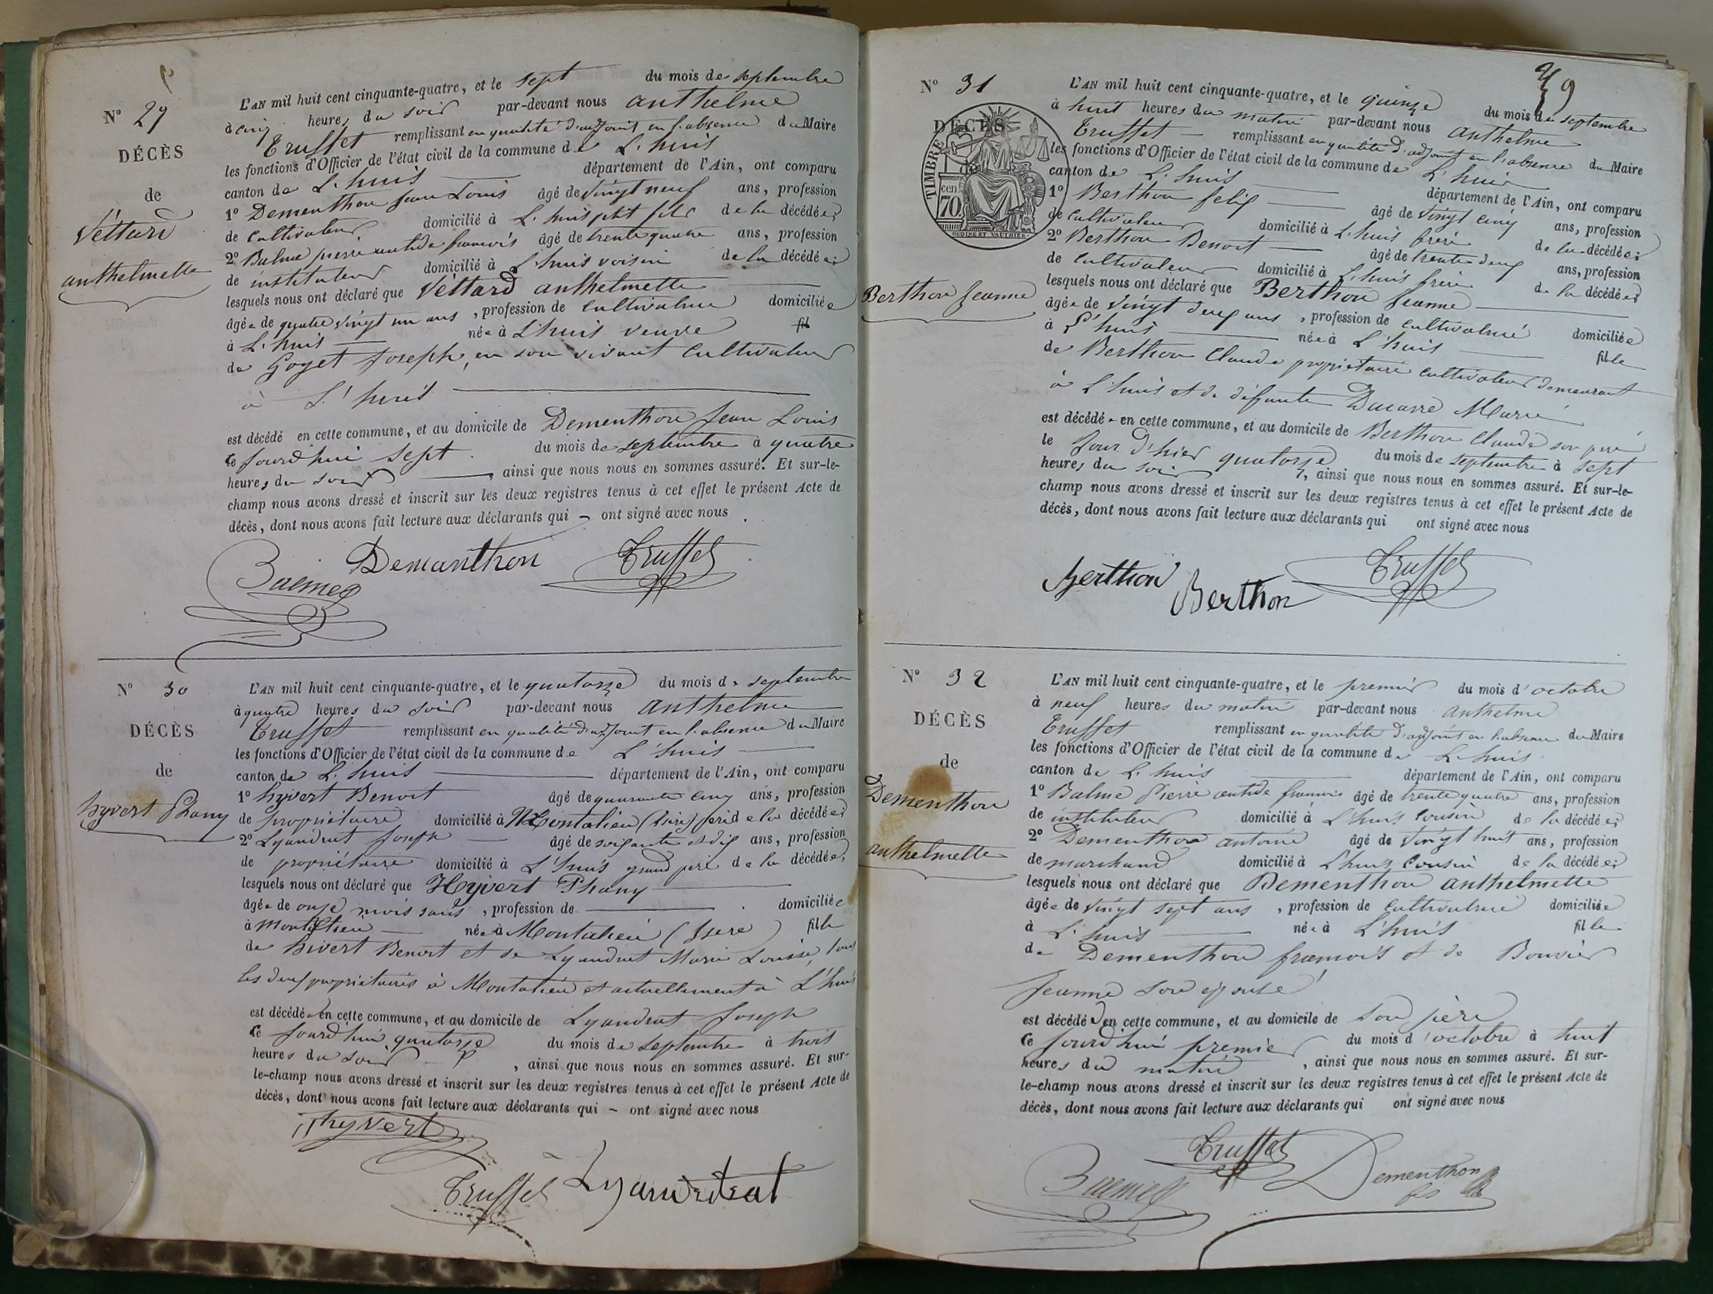 N° 29
DÉCÈS
de
Véttard
anthelmette
L'AN mil huit cent cinquante-quatre, et le sept du mois de septembre
à cinq heures du soir par-devant nous anthelme
Truffet remplissant en qualité d'adjoint en l'absence du Maire
les fonctions d'Officier de l'état civil de la commune de L'huis
canton de L'huis département de l'Ain, ont comparu
1° Dementhon Jean Louis âgé de vingt neuf ans, profession
de cultivateur domicilié à L'huis ptit fils de la décédée;
2° Balme pierre antide françois âgé de trente quatre ans, profession
de instituteur domicilié à L'huis voisin de la décédée;
lesquels nous ont déclaré que Véttard anthelmette
âgée de quatre vingt un ans, profession de cultivatrice domiciliée
à L'huis née à L'huis veuve fil
de Goyet Joseph, en son vivant cultivateur
à L'huis
est décédé en cette commune, et au domicile de Dementhon Jean Louis
ce jourd'hui sept du mois de septembre à quatre
heures du soir, ainsi que nous nous en sommes assuré. Et sur-le-
champ nous avons dressé et inscrit sur les deux registres tenus à cet effet le présent Acte de
décès, dont nous avons fait lecture aux déclarants qui ont signé avec nous
Balme Dementhon Truffet
N° 30
DÉCÈS
de
hyvert Phany
L'AN mil huit cent cinquante-quatre, et le quatorze du mois de septembre
à quatre heures du soir par-devant nous anthelme
Truffet remplissant en qualité d'adjoint en l'absence du Maire
les fonctions d'Officier de l'état civil de la commune de L'huis
canton de L'huis département de l'Ain, ont comparu
1° hyvert Benoit âgé de quarante cinq ans, profession
de propriétaire domicilié à Montalieu (isère) père de la décédée;
2° Lyaudrat Joseph âgé de soixante et dix ans, profession
de propriétaire domicilié à L'huis grand père de la décédée;
lesquels nous ont déclaré que Hyvert Phany
âgée de onze mois sans, profession de domiciliée
à montalieu née à Montalieu (Isère) fille
de hivert Benoit et de Lyaudrat Marie Louise, tous
les deux propriétaires à Montalieu et actuellement à L'huis
est décédée en cette commune, et au domicile de Lyaudrat Joseph
ce jourd'hui quatorze du mois de septembre à trois
heures du soir, ainsi que nous nous en sommes assuré. Et sur-
le-champ nous avons dressé et inscrit sur les deux registres tenus à cet effet le présent Acte de
décès, dont nous avons fait lecture aux déclarants qui ont signé avec nous
hyvert
Truffet Lyaudrat
9
N° 31
DÉCÈS
TIMBRE
cen 70
de
Berthon Jeanne
L'AN mil huit cent cinquante-quatre, et le quinze du mois de septembre
à huit heures du matin par-devant nous anthelme
Truffet remplissant en qualité d'adjoint en l'absence du Maire
les fonctions d'Officier de l'état civil de la commune de L'huis
canton de L'huis département de l'Ain, ont comparu
1° Berthon felix âgé de vingt cinq ans, profession
de cultivateur domicilié à L'huis frère de la décédée;
2° Berthon Benoit âgé de trente deux ans, profession
de cultivateur domicilié à L'huis frère de la décédée;
lesquels nous ont déclaré que Berthon Jeanne
âgée de vingt deux ans, profession de cultivatrice domiciliée
à L'huis née à L'huis fille
de Berthon Claude propriétaire cultivateur demeurant
à L'huis et de défunte Ducarre Marie
est décédée en cette commune, et au domicile de Berthon Claude son père
le jour d'hier quatorze du mois de septembre à sept
heures du soir, ainsi que nous nous en sommes assuré. Et sur-le-
champ nous avons dressé et inscrit sur les deux registres tenus à cet effet le présent Acte de
décès, dont nous avons fait lecture aux déclarants qui ont signé avec nous
Berthon Berthon Truffet
N° 32
DÉCÈS
de
Dementhon
anthelmette
L'AN mil huit cent cinquante-quatre, et le premier du mois d'octobre
à neuf heures du matin par-devant nous anthelme
Truffet remplissant en qualité d'adjoint en l'absence du Maire
les fonctions d'Officier de l'état civil de la commune de L'huis
canton de L'huis département de l'Ain, ont comparu
1° Balme Pierre antide françois âgé de trente quatre ans, profession
de instituteur domicilié à L'huis cousin de la décédée;
2° Dementhon antoine âgé de vingt huit ans, profession
de marchand domicilié à L'huis cousin de la décédée;
lesquels nous ont déclaré que Dementhon anthelmette
âgée de vingt sept ans, profession de cultivatrice domiciliée
à L'huis née à L'huis fille
de Dementhon françois et de Bouvier
Jeanne son épouse
est décédé en cette commune, et au domicile de son père
ce jourd'hui premier du mois d'octobre à huit
heures du matin, ainsi que nous nous en sommes assuré. Et sur-
le-champ nous avons dressé et inscrit sur les deux registres tenus à cet effet le présent Acte de
décès, dont nous avons fait lecture aux déclarants qui ont signé avec nous
Truffet
Balme Dementhon